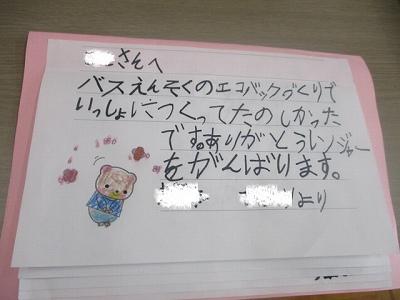 さんへ
バスえんそくのエコバックづくりで
いっしょにつくってたのしかった
です。ありがとうレンジャー
をがんばります。
より